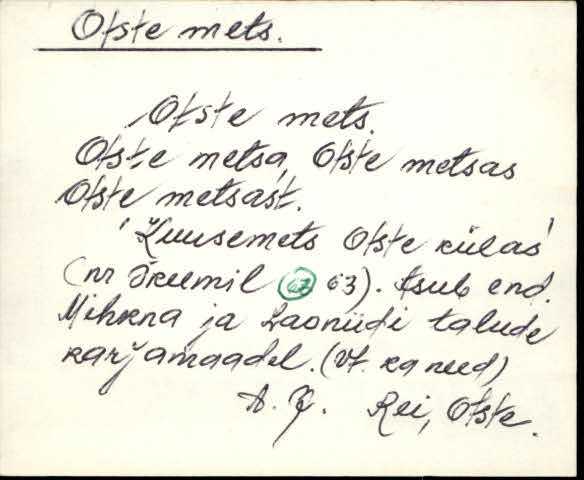 Otste mets.
Otste mets.
Otste metsa, Otste metsas
Otste metsast.
'Kuusemets Otste külas'
(nr skeemil 67 63). Asub end.
Mihkna ja Laoniidi talude
karjamaadel. (Vt. ka need)
A. K. Rei, Otste.